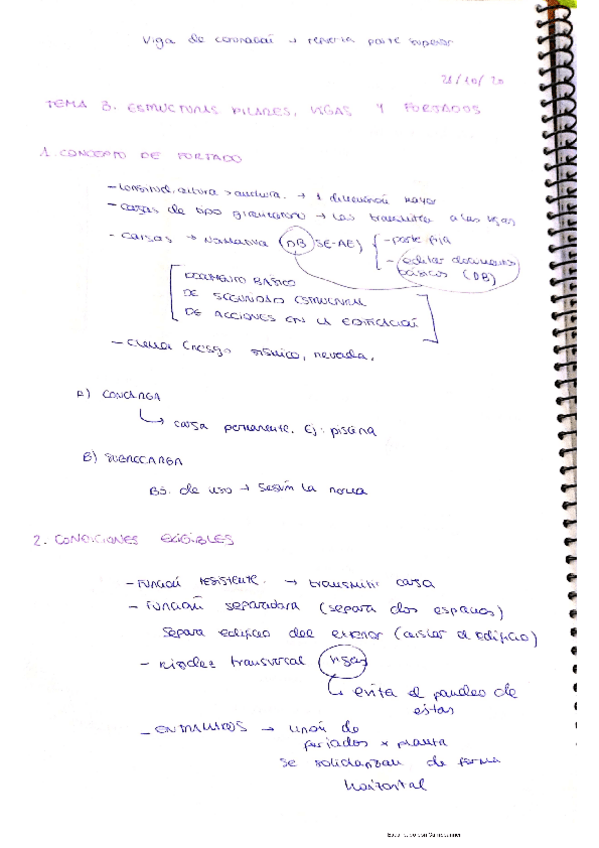 Viga de coronación → refuerza parte superior
21/10/20
TEMA 3. ESTRUCTURAS PILARES, VIGAS Y FORJADOS
1. CONCEPTO DE FORJADO
- Longitud, altura > anchura. → 1 dimensión mayor
- Cargas de tipo gravitatorio → las transmite a las vigas
- Cargas → Normativa (DB SE-AE) { - parte fija
- editar documentos básicos (DB)
[DOCUMENTO BÁSICO
DE SEGURIDAD ESTRUCTURAL
DE ACCIONES EN LA EDIFICACIÓN]
- (riesgo sísmico, nevada,
A) CONCARGA
↳ carga permanente. Ej: piscina
B) SUBRECARGA
de uso → según la norma
2. CONDICIONES EXIGIBLES
- Función resistente. → transmitir carga
- Función separadora (separa dos espacios)
Separa edificio del exterior (aislar el edificio)
- Rigidez transversal vigas
↳ evita el pandeo de
estas
- ENTRAMADOS → unión de
forjados x planta
se solidarizan de forma
horizontal